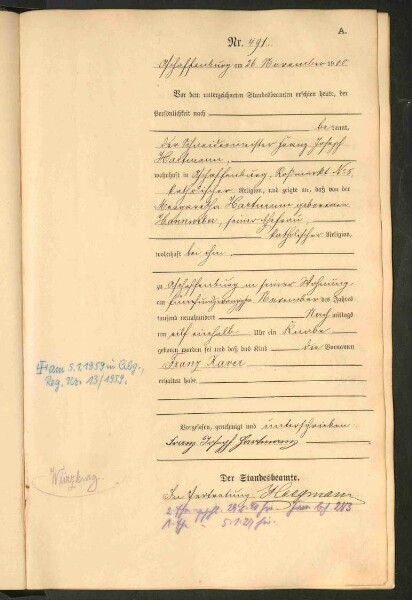 A.
Nr. 491.
Aschaffenburg am 26 November 1900
Vor dem unterzeichneten Standesbeamten erschien heute, der
Persönlichkeit nach
bekannt,
der Schneidermeister Franz Joseph
Hartmann,
wohnhaft in Aschaffenburg, Roßmarkt No 5,
katholischer Religion, und zeigte an, daß von der
Margaretha Hartmann geborenen
seiner Ehefrau,
katholischer Religion,
wohnhaft bei ihm,
zu Aschaffenburg in seiner Wohnung
am fünfundzwanzigsten November des Jahres
tausend neunhundert Nachmittags
um elf einhalb Uhr ein Knabe
geboren worden sei und daß das Kind die Vornamen
Franz Xaver
erhalten habe.
Vorgelesen, genehmigt und unterschrieben
Franz Joseph Hartmann
Der Standesbeamte.
In Vertretung
† am 5.1.1959 in Abg.,
Reg. Nr. 13/1959.